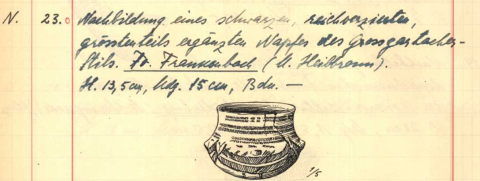 N. 23. Nachbildung eines schwarzen, reichverzierten,
grösstenteils ergänzten Napfes des Grossgartacher-
Stils. Fo. Frankenbach (b. Heilbronn).
H. 13,5 cm, Mdg. 15 cm, Bdn. —
1/5